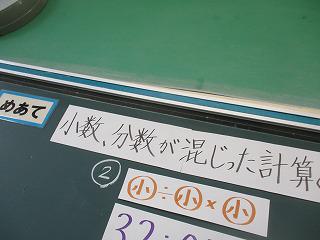 めあて
小数、分数が混じった計算
②
小÷小×小